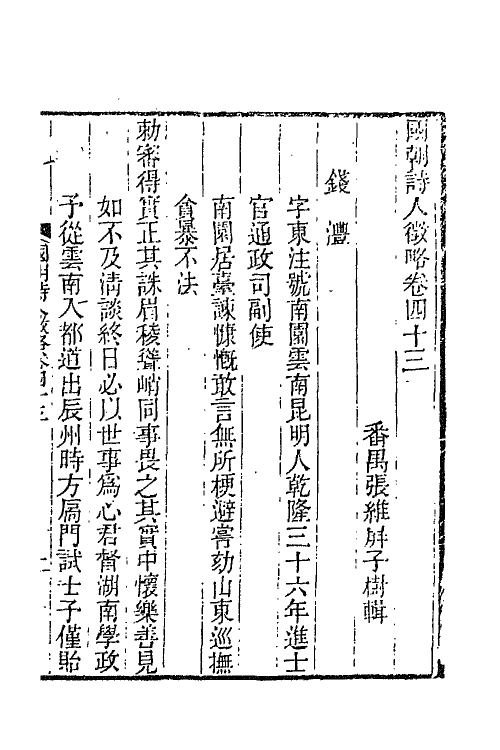 國朝詩人徵略卷四十三
番禺張維屏子樹輯
錢灃
字東注號南園雲南昆明人乾隆三十六年進士
官通政司副使
南園居臺諫慷慨敢言無所梗避嘗劾山東巡撫
貪暴不法
勅審得實正其誅眉稜聳峭同事畏之其實中懷樂善見
如不及清談終日必以世事爲心君督湖南學政
予從雲南入都道出辰州時方扃門試士子僅貽
國朝詩人徵略卷四十三
一